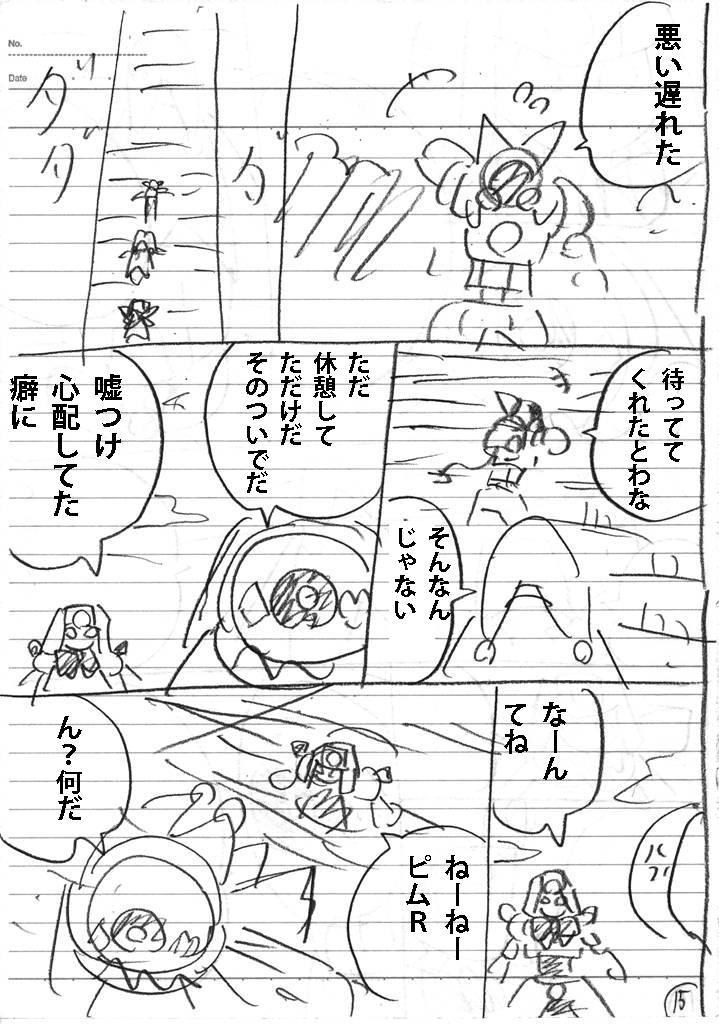 No.
Date
悪い遅れた
ダダダ
待ってて
くれたとわな
そんなん
じゃない
ただ
休憩して
ただけだ
そのついでだ
嘘つけ
心配してた
癖に
なーん
てね
ねーねー
ピムR
ん?何だ
15